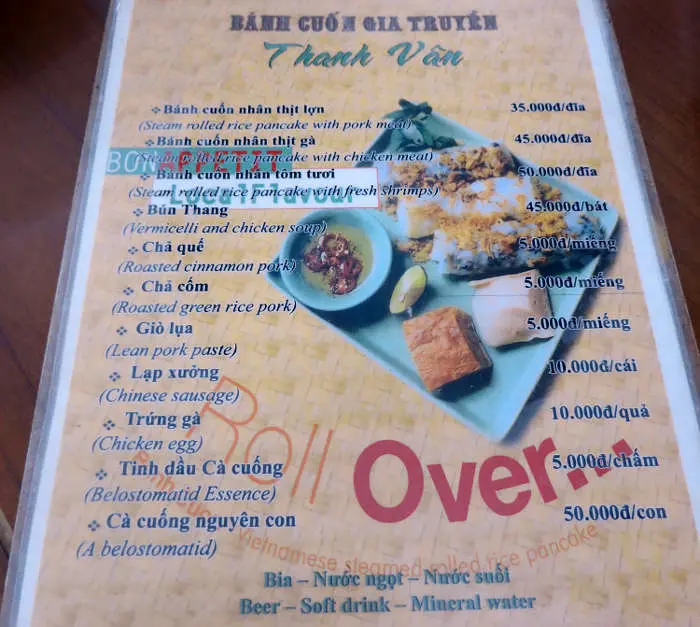 BÁNH CUỐN GIA TRUYỀN
Thanh Vân
❖ Bánh cuốn nhân thịt lợn 35.000đ/đĩa
(Steam rolled rice pancake with pork meat)
❖ Bánh cuốn nhân thịt gà 45.000đ/đĩa
BON APPETIT
(Steam rolled rice pancake with chicken meat)
❖ Bánh cuốn nhân tôm tươi 50.000đ/đĩa
(Steam rolled rice pancake with fresh shrimps)
Local Flavour
❖ Bún Thang 45.000đ/bát
(Vermicelli and chicken soup)
❖ Chả quế 5.000đ/miếng
(Roasted cinnamon pork)
❖ Chả cốm 5.000đ/miếng
(Roasted green rice pork)
❖ Giò lụa 5.000đ/miếng
(Lean pork paste)
❖ Lạp xưởng 10.000đ/cái
(Chinese sausage)
❖ Trứng gà 10.000đ/quả
(Chicken egg)
Roll Over...
❖ Tinh dầu Cà cuống 5.000đ/chấm
(Belostomatid Essence)
❖ Cà cuống nguyên con 50.000đ/con
(A belostomatid)
Vietnamese steamed rolled rice pancake
Bia – Nước ngọt – Nước suối
Beer – Soft drink – Mineral water